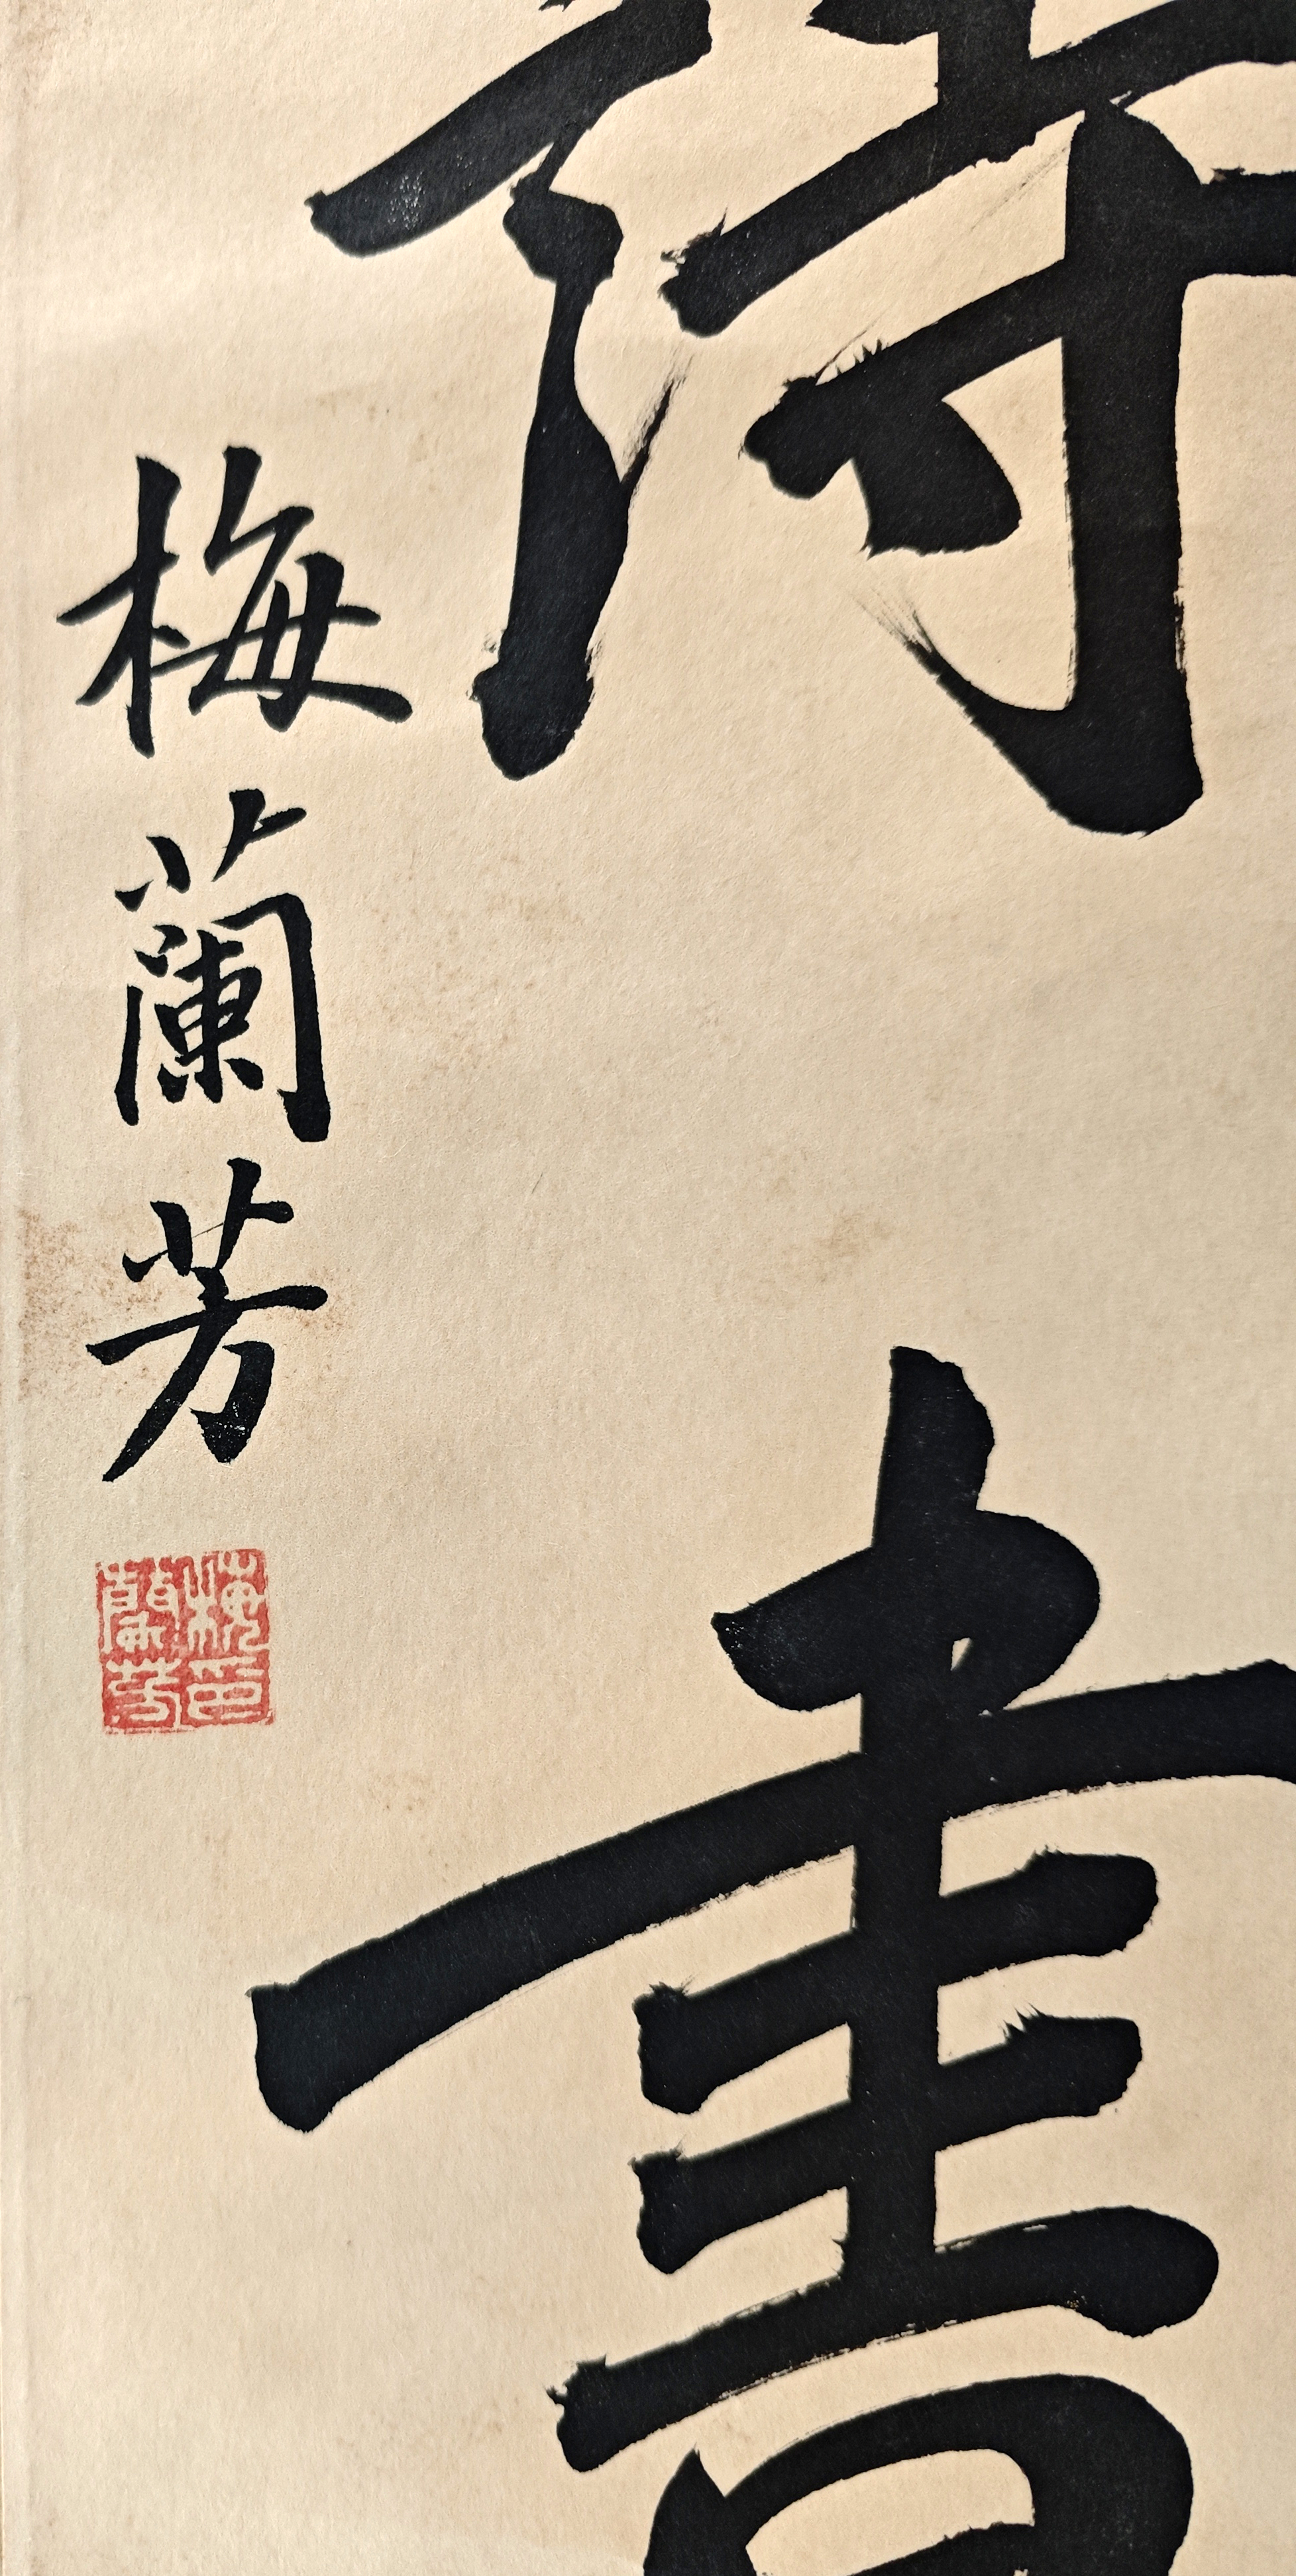 詩書
梅蘭芳
梅蘭芳印